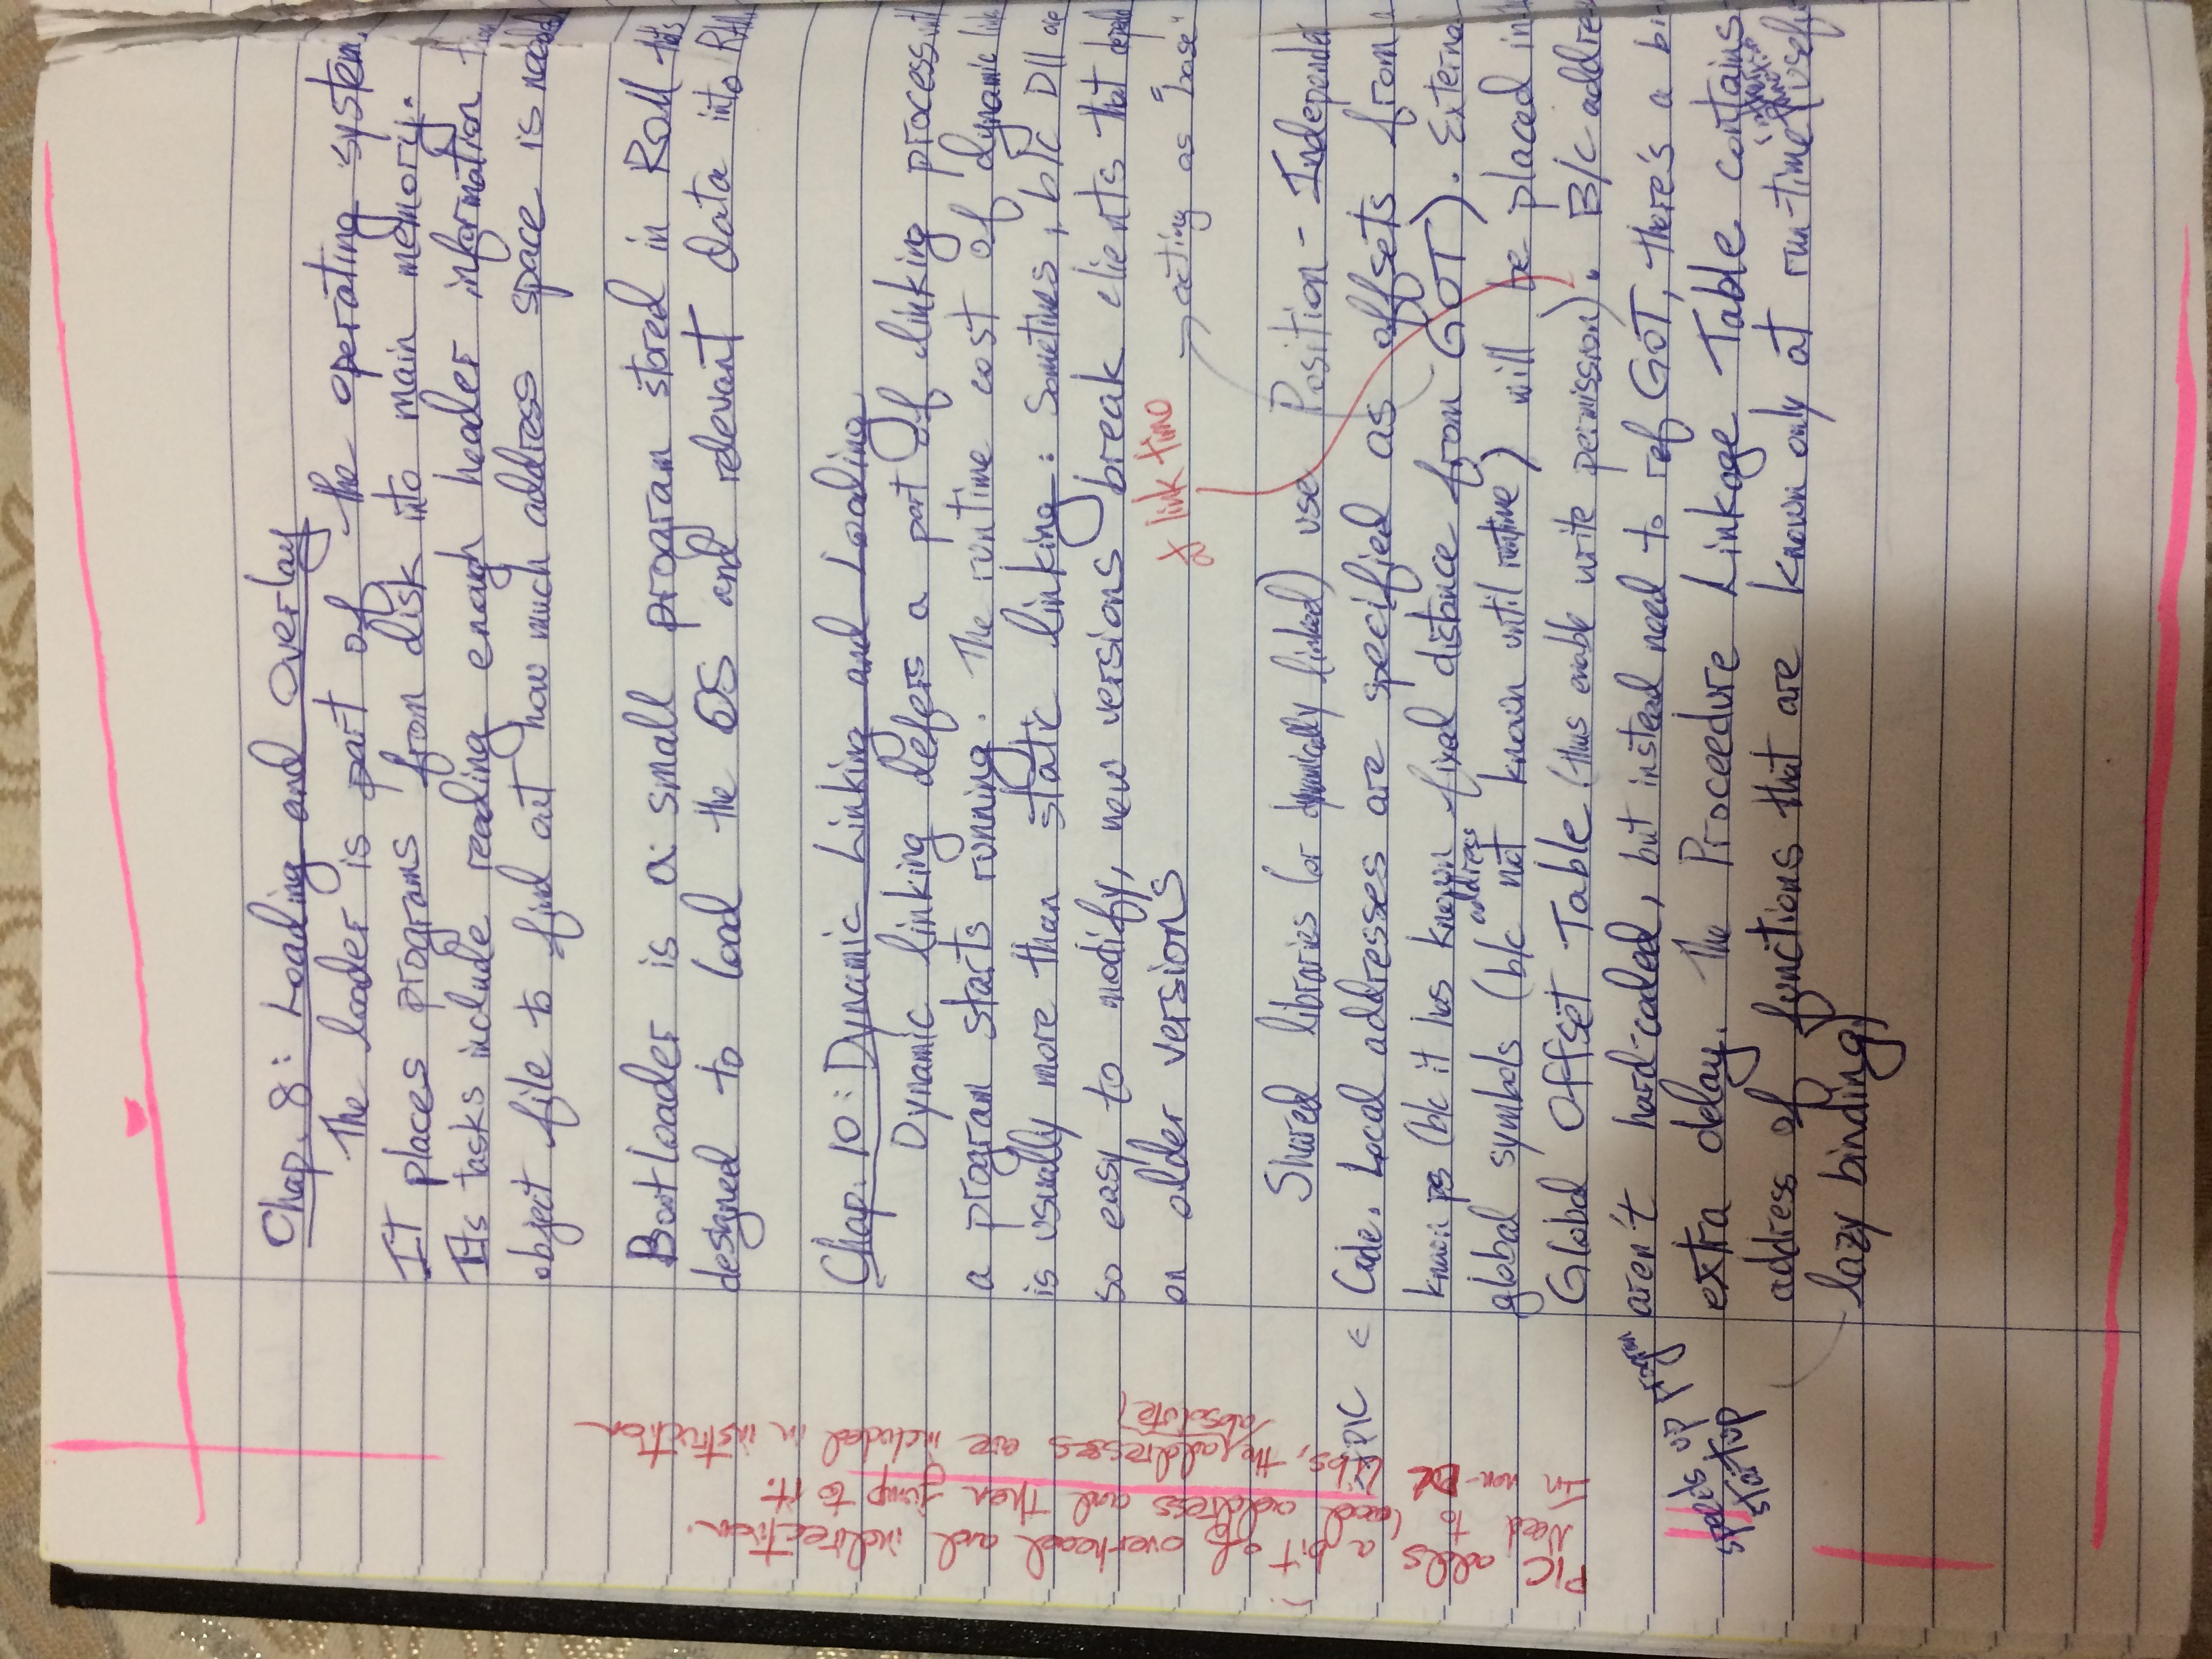 Chap. 8: Loading and Overlay
The loader is part of the operating system.
It places programs from disk into main memory.
Its tasks include reading enough header information
object file to find out how much address space is needed
Bootloader is a small program stored in ROM that's
designed to load the OS and relevant data into RAM.
Chap. 10: Dynamic Linking and Loading
Dynamic linking defers a part of linking process until
a program starts running. The runtime cost of dynamic
is usually more than static linking: Sometimes, b/c Dll are
so easy to modify, new versions break clients that depend
on older versions
at link time
→ acting as "base"
Shared libraries (or dynamically linked) use Position-Independent
PIC ← Code. Local addresses are specified as offsets from a
known (b/c it has known fixed distance from GOT). External
global symbols (b/c address not known until runtime) will be placed in
Global Offset Table (thus enable write permission). B/C addre
aren't hard-coded, but instead need to ref GOT, there's a bi
extra delay. The Proceedure Linkage Table contains
address of functions that are known only at run-time (usefu
in other function
lazy binding)
speeds up program
startup
PIC adds a bit of overhead and indirection.
Need to load address and then jump to it.
In non-DL Libs, the addresses are included in instruction
absolute